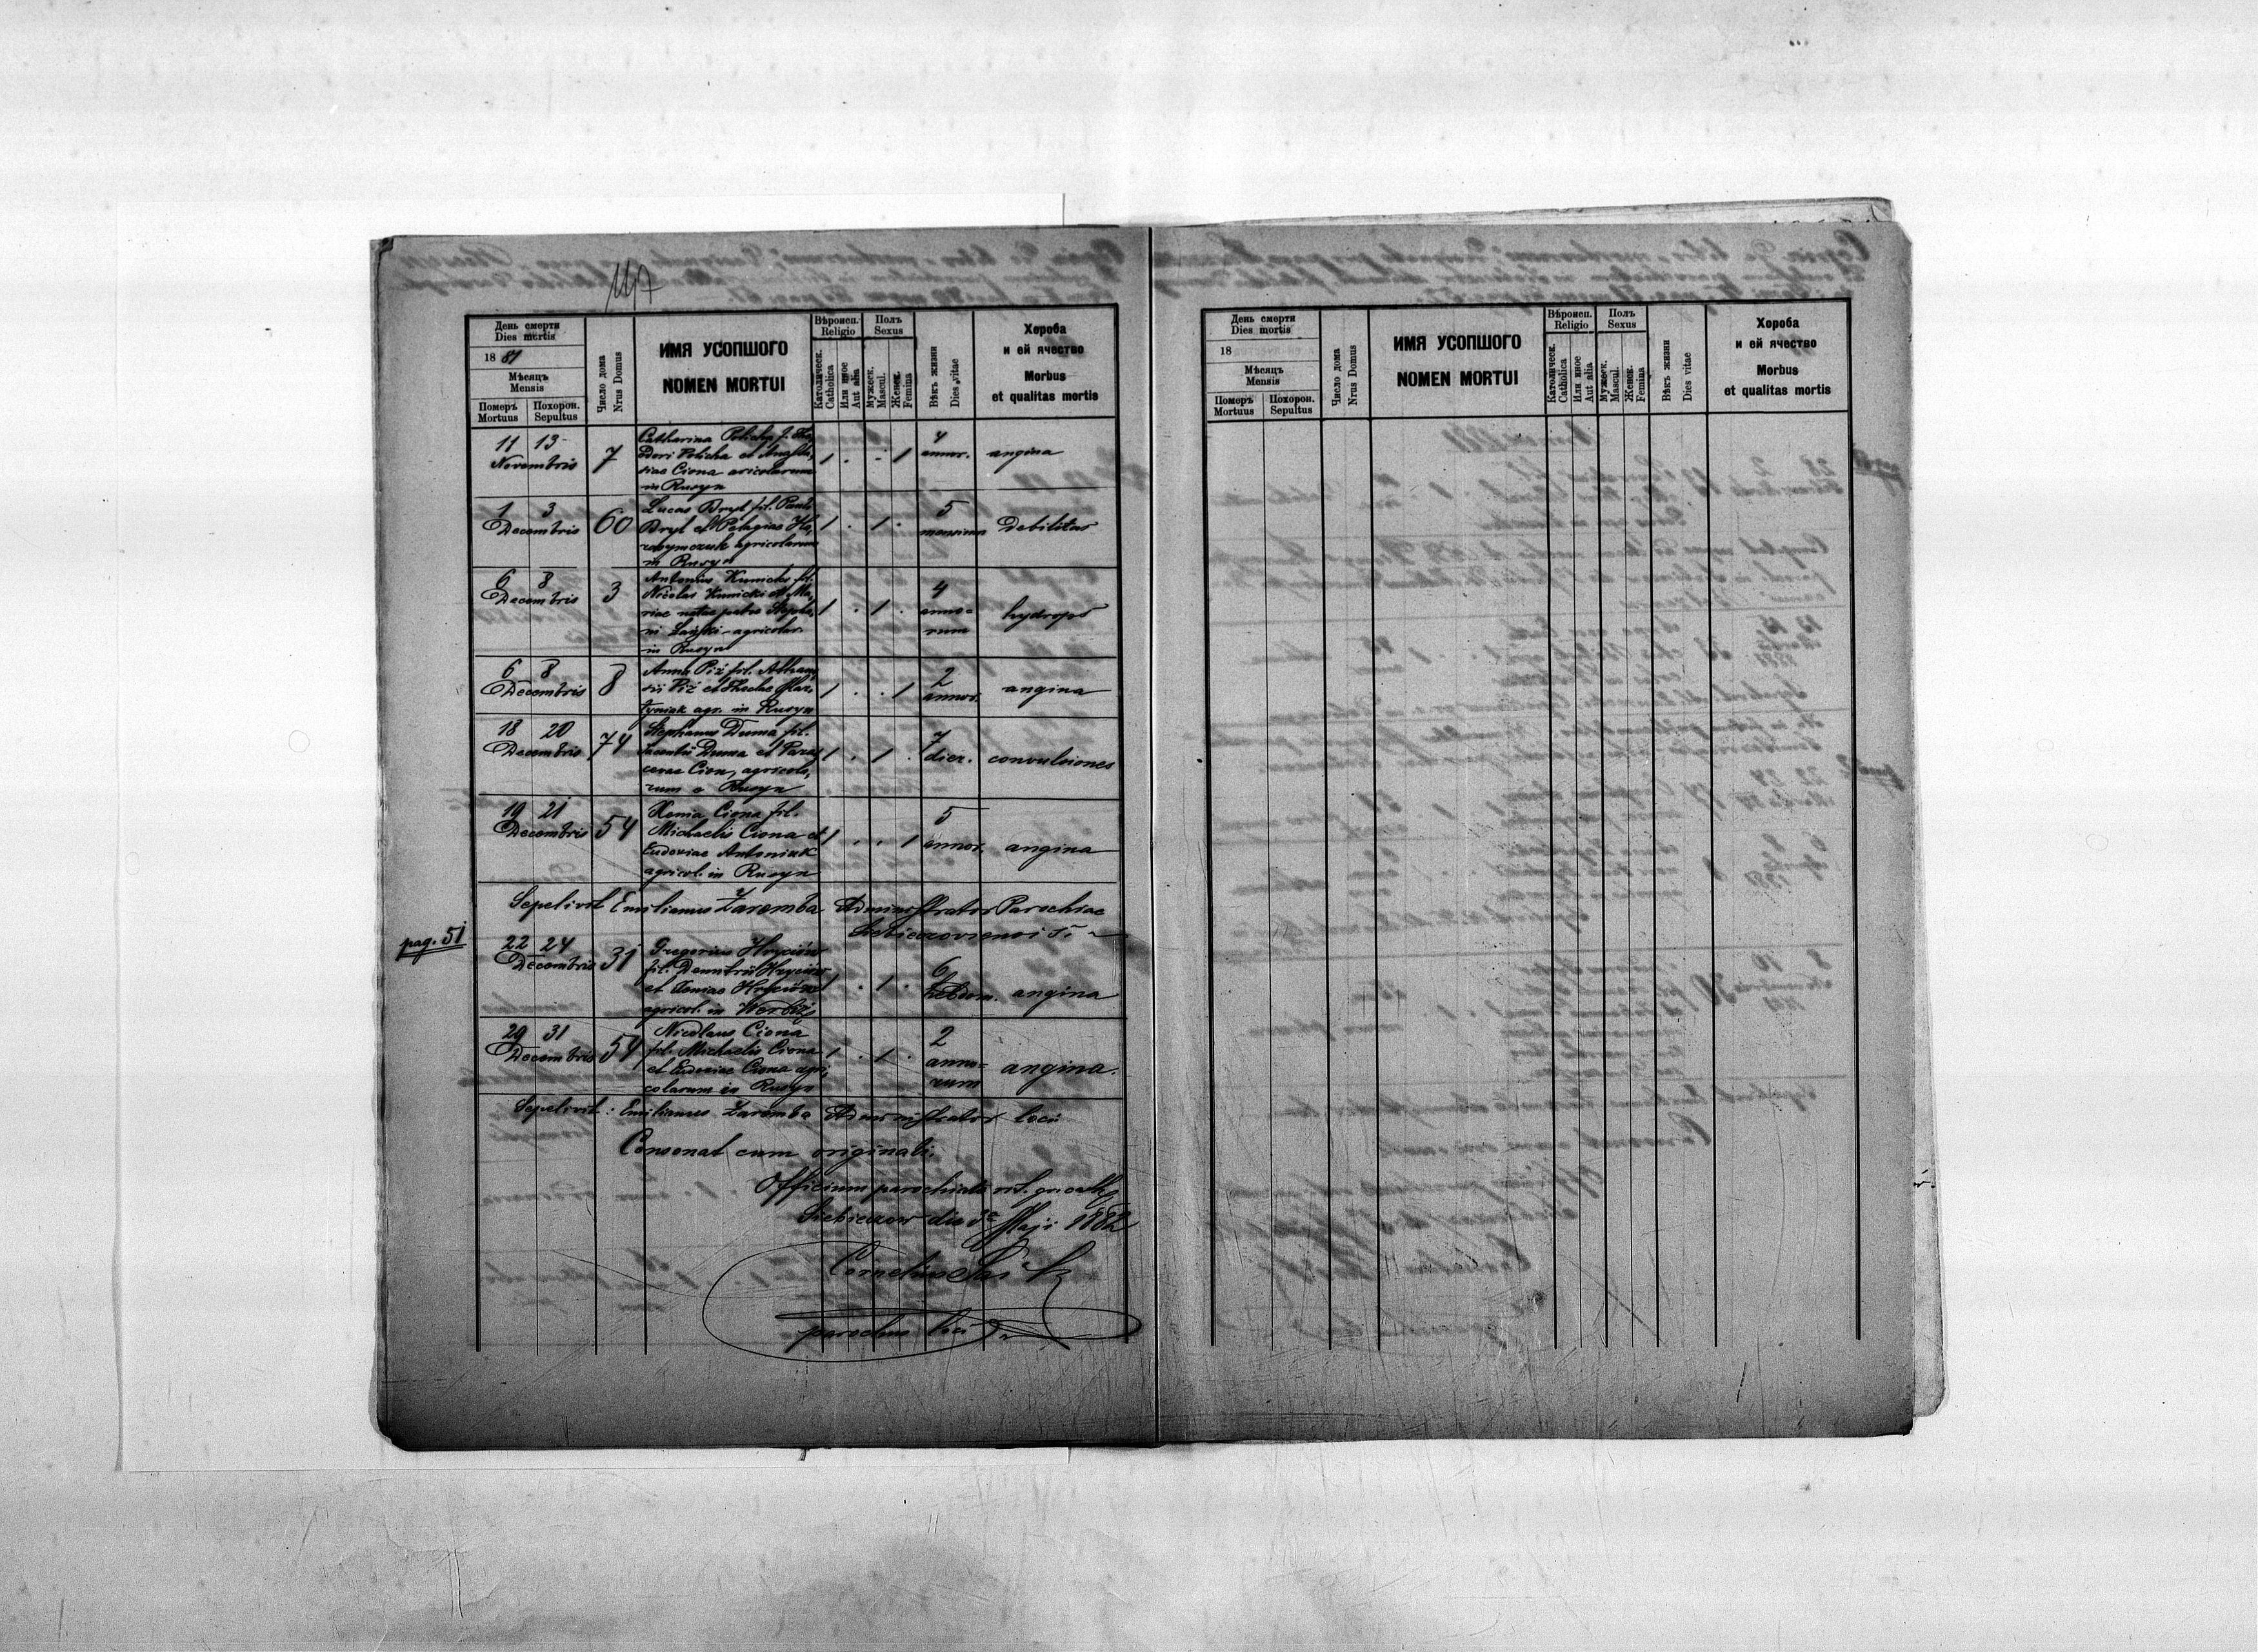 117
День смерти
Dies mortis
18 81
Мѣсяцъ
Mensis
Померъ
Mortuus
Похорон.
Sepultus
Число дома
Nrus Domus
ИМЯ УСОПШОГО
NOMEN MORTUI
Вѣроисп.
Religio
Католическ.
Catholica
Или иное
Aut alia
Полъ
Sexus
Мужеск.
Mascul.
Женск.
Femina
Вѣкъ жизни
Dies vitae
Хороба
и ей ячество
Morbus
et qualitas mortis
11 13
Novembris
7
Catharina Policha f. Theo
dori Policha et Anasta,
siae Ciona agricolarum
in Rusyn
1 . . 1
4
annor.
angina
1 3
Decembris
60
Lucas Bryl fil. Pauli
Bryl et Pelagiae Ha,
agricolarum
in Rusyn
1 . 1 .
5
mensium
Debilitas
6 8
Decembris
3
Antonius Kunicki fil.
Nicolai Kunicki et Ma,
riae natae patre Stepha,
ni agricolar.
in Rusyn
1 . 1 .
4
anno-
rum
hydrops
6 8
Decembris
8
Anna Piż fil. Athana
sii Piż et Theclae Mar,
tyniak agr. in Rusyn
1 . . 1
2
annor.
angina
18 20
Decembris
74
Stephanus Duma fil.
Duma et Paras
cevae Cion, agricola,
rum e Rusyn
1 . 1 .
7
dier.
convulsiones
19 21
Decembris
54
Xenia Ciona fil.
Michaelis Ciona et
Eudoxiae Antoniuk
agricol. in Rusyn
1 . . 1
5
annor.
angina
Sepelivit Emilianus Zaremba Administrator Parochiae
pag. 51
22 24
Decembris
31
Gregorius Hryciów
fil. Demetrii Hryciów
et Xeniae Hryciów
agricol. in Werbiż
1 . 1 .
6
hebdom.
angina
29 31
Decembris
54
Nicolaus Ciona
fil. Michaelis Ciona
et Eudoxiae Ciona agri,
colarum in Rusyn
1 . 1 .
2
anno-
rum
angina.
Sepelivit: Emilianus Zaremba Administrator loci
Consonat cum originali.
Officium parochiale rit. gr. cath.
die Maji 1882
Cornelius
parochus loci
День смерти
Dies mortis
18
Мѣсяцъ
Mensis
Померъ
Mortuus
Похорон.
Sepultus
Число дома
Nrus Domus
ИМЯ УСОПШОГО
NOMEN MORTUI
Вѣроисп.
Religio
Католическ.
Catholica
Или иное
Aut alia
Полъ
Sexus
Мужеск.
Mascul.
Женск.
Femina
Вѣкъ жизни
Dies vitae
Хороба
и ей ячество
Morbus
et qualitas mortis